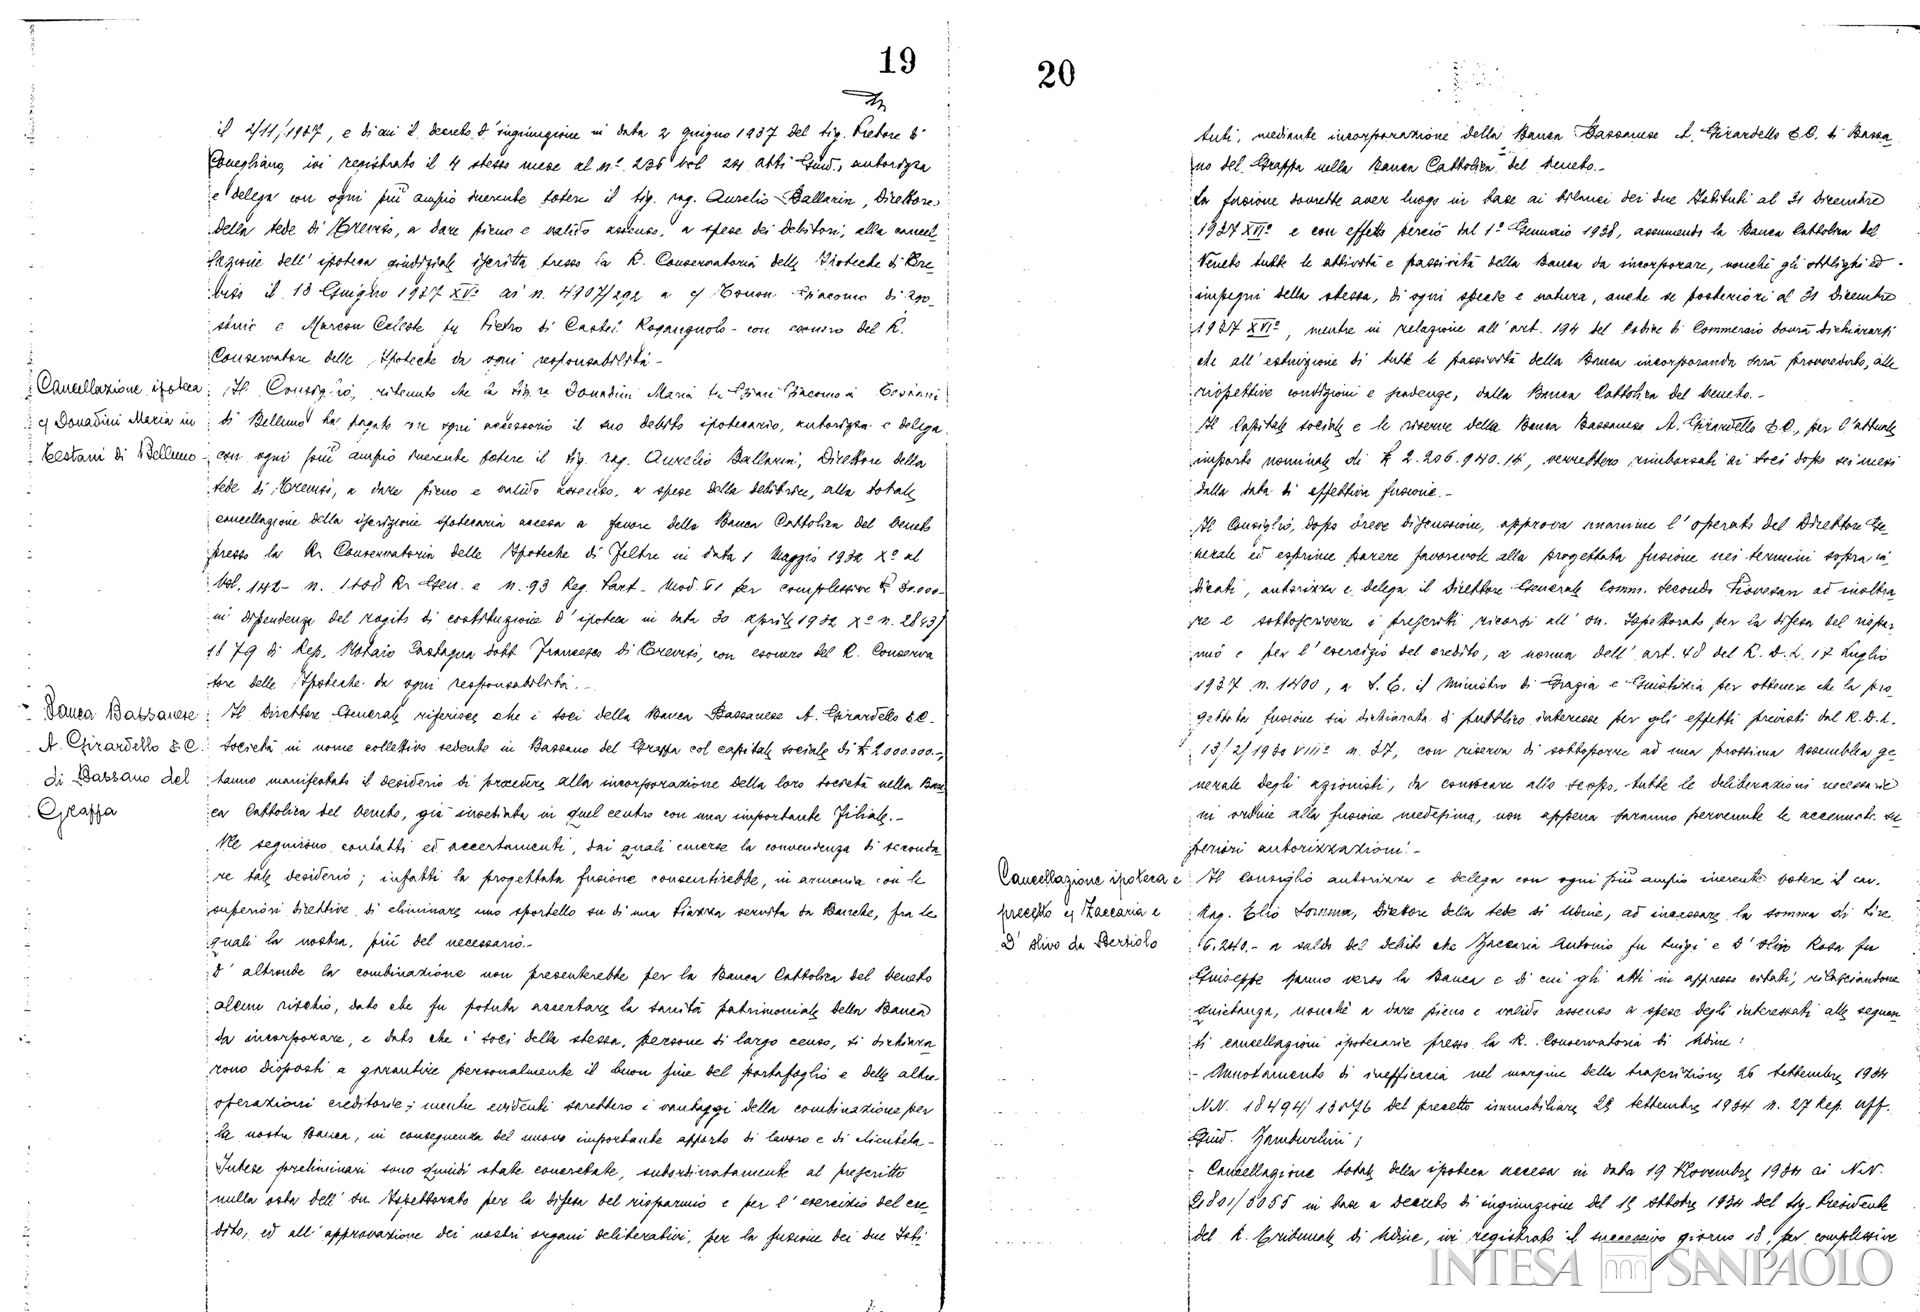 19
il 2/11/1937, e di cui il decreto d'ingiunzione in data 2 giugno 1937 del sig. Pretore di
Conegliano, ivi registrato il 4 stesso mese al n° 236 vol 24 Atti Giud., autorizza
e delega con ogni più ampio inerente potere il sig. rag. Aurelio Ballarin, Direttore
della sede di Treviso, a dare pieno e valido assenso, a spese dei debitori, alla cancel
lazione dell'ipoteca giudiziale iscritta presso la R. Conservatoria delle Ipoteche di Tre
viso il 18 Giugno 1937 XV° ai n. 4707/292 a c/ Tonon Giacomo di Ago
stino e Marcon Celeste fu Pietro di Castel Roganzuolo - con esonero del R.
Conservatore delle Ipoteche da ogni responsabilità -
Cancellazione ipoteca
c/ Donadini Maria in
Cestani di Belluno
Il Consiglio, ritenuto che la sig.ra Donadini Maria fu Giacomo in
di Belluno ha pagato in ogni accessorio il suo debito ipotecario, autorizza e delega
con ogni più ampio inerente potere il sig. rag. Aurelio Ballarin, Direttore della
sede di Treviso, a dare pieno e valido assenso, a spese della debitrice, alla totale
cancellazione della iscrizione ipotecaria accesa a favore della Banca Cattolica del Veneto
presso la R. Conservatoria delle Ipoteche di Feltre in data 1 Maggio 1932 X° al
Vol. 142 - n. R. Gen. e n. 93 Reg. Part. - Mod. 61 per complessive £ 30.000-
in dipendenza del rogito di costituzione d'ipoteca in data 30 aprile 1932 X° n. 2843/
1879 di Rep. Notaio Castagna dott Francesco di Treviso, con esonero del R. Conserva
tore delle Ipoteche da ogni responsabilità. -
Banca Bassanese
A. Girardello & C.
di Bassano del
Grappa
Il Direttore Generale riferisce che i soci della Banca Bassanese A. Girardello & C.
società in nome collettivo sedente in Bassano del Grappa col capitale sociale di £ 2.000.000.-,
hanno manifestato il desiderio di procedere alla incorporazione della loro società nella Ban
ca Cattolica del Veneto, già insediata in quel centro con una importante Filiale. -
Ne seguirono contatti ed accertamenti, dai quali emerse la convenienza di seconda
re tale desiderio; infatti la progettata fusione consentirebbe, in armonia con le
superiori direttive di eliminare uno sportello su di una Piazza servita da Banche, fra le
quali la nostra, più del necessario. -
D'altronde la combinazione non presenterebbe per la Banca Cattolica del Veneto
alcun rischio, dato che fu potuta accertare la sanità patrimoniale della Banca
da incorporare, e dato che i soci della stessa, persone di largo censo, si dichiara
rono disposti a garantire personalmente il buon fine del portafoglio e delle altre
operazioni creditorie; mentre evidenti sarebbero i vantaggi della combinazione per
la nostra Banca, in conseguenza del nuovo importante apporto di lavoro e di clientela -
Intese preliminari sono quindi state concretate, subordinatamente al prescritto
nulla osta dell'on Ispettorato per la difesa del risparmio e per l'esercizio del cre
dito, ed all'approvazione dei nostri organi deliberativi, per la fusione dei due Isti
20
tuti, mediante incorporazione della Banca Bassanese A. Girardello & C. di Bassa
no del Grappa nella Banca Cattolica del Veneto. -
La fusione dovrebbe aver luogo in base ai bilanci dei due Istituti al 31 Dicembre
1937 XVI° e con effetto perciò dal 1° Gennaio 1938, assumendo la Banca Cattolica del
Veneto tutte le attività e passività della Banca da incorporare, nonché gli obblighi ed
impegni della stessa, di ogni specie e natura, anche se posteriori al 31 Dicembre
1937 XVI°, mentre in relazione all'art. 194 del Codice di Commercio dovrà dichiararsi
che all'estinzione di tutte le passività della Banca incorporanda sarà provveduto, alle
rispettive condizioni e scadenze, dalla Banca Cattolica del Veneto. -
Il Capitale sociale e le riserve della Banca Bassanese A. Girardello & C., per l'attuale
importo nominale di £ 2.206.940.14, verrebbero rimborsati ai soci dopo sei mesi
dalla data di effettiva fusione. -
Il Consiglio, dopo breve discussione, approva unanime l'operato del Direttore Ge
nerale ed esprime parere favorevole alla progettata fusione nei termini sopra in
dicati, autorizza e delega il Direttore Generale Comm. Secondo Piovesan ad inoltra
re e sottoscrivere i prescritti ricorsi all'on. Ispettorato per la difesa del rispar
mio e per l'esercizio del credito, a norma dell'art. 48 del R. D. L. 17 Luglio
1937 n. 1400, a S. E. il Ministro di Grazia e Giustizia per ottenere che la pro
gettata fusione sia dichiarata di pubblico interesse per gli effetti previsti dal R. D. L.
13/2/1930 VIII° n. 37, con riserva di sottoporre ad una prossima Assemblea ge
nerale degli azionisti, da convocare allo scopo, tutte le deliberazioni necessarie
in ordine alla fusione medesima, non appena saranno pervenute le accennate su
periori autorizzazioni. -
Cancellazione ipoteca e
precetto c/ Zaccaria e
D'Olivo da Bertiolo
Il Consiglio autorizza e delega con ogni più ampio inerente potere il cav.
Rag. Elio Somma, Direttore della sede di Udine, ad incassare la somma di Lire
6.240.- a saldo del debito che Zaccaria Antonio fu Luigi e D'Olivo Rosa fu
Giuseppe hanno verso la Banca e di cui gli atti in appresso citati, rilasciandone
quietanza, nonché a dare pieno e valido assenso a spese degli interessati alle seguen
ti cancellazioni ipotecarie presso la R. Conservatoria di Udine:
- Annotamento di inefficacia nel margine della trascrizione 26 settembre 1934
NN. 18494/13076 del precetto immobiliare 25 settembre 1934 n. 27 Rep. Uff.
Giud. Zamburlini;
- Cancellazione totale della ipoteca accesa in data 19 Novembre 1934 ai N.N.
21801/3055 in base a decreto di ingiunzione del 15 ottobre 1934 del sig. Presidente
del R. Tribunale di Udine, ivi registrato il successivo giorno 18, per complessive
INTESA SANPAOLO